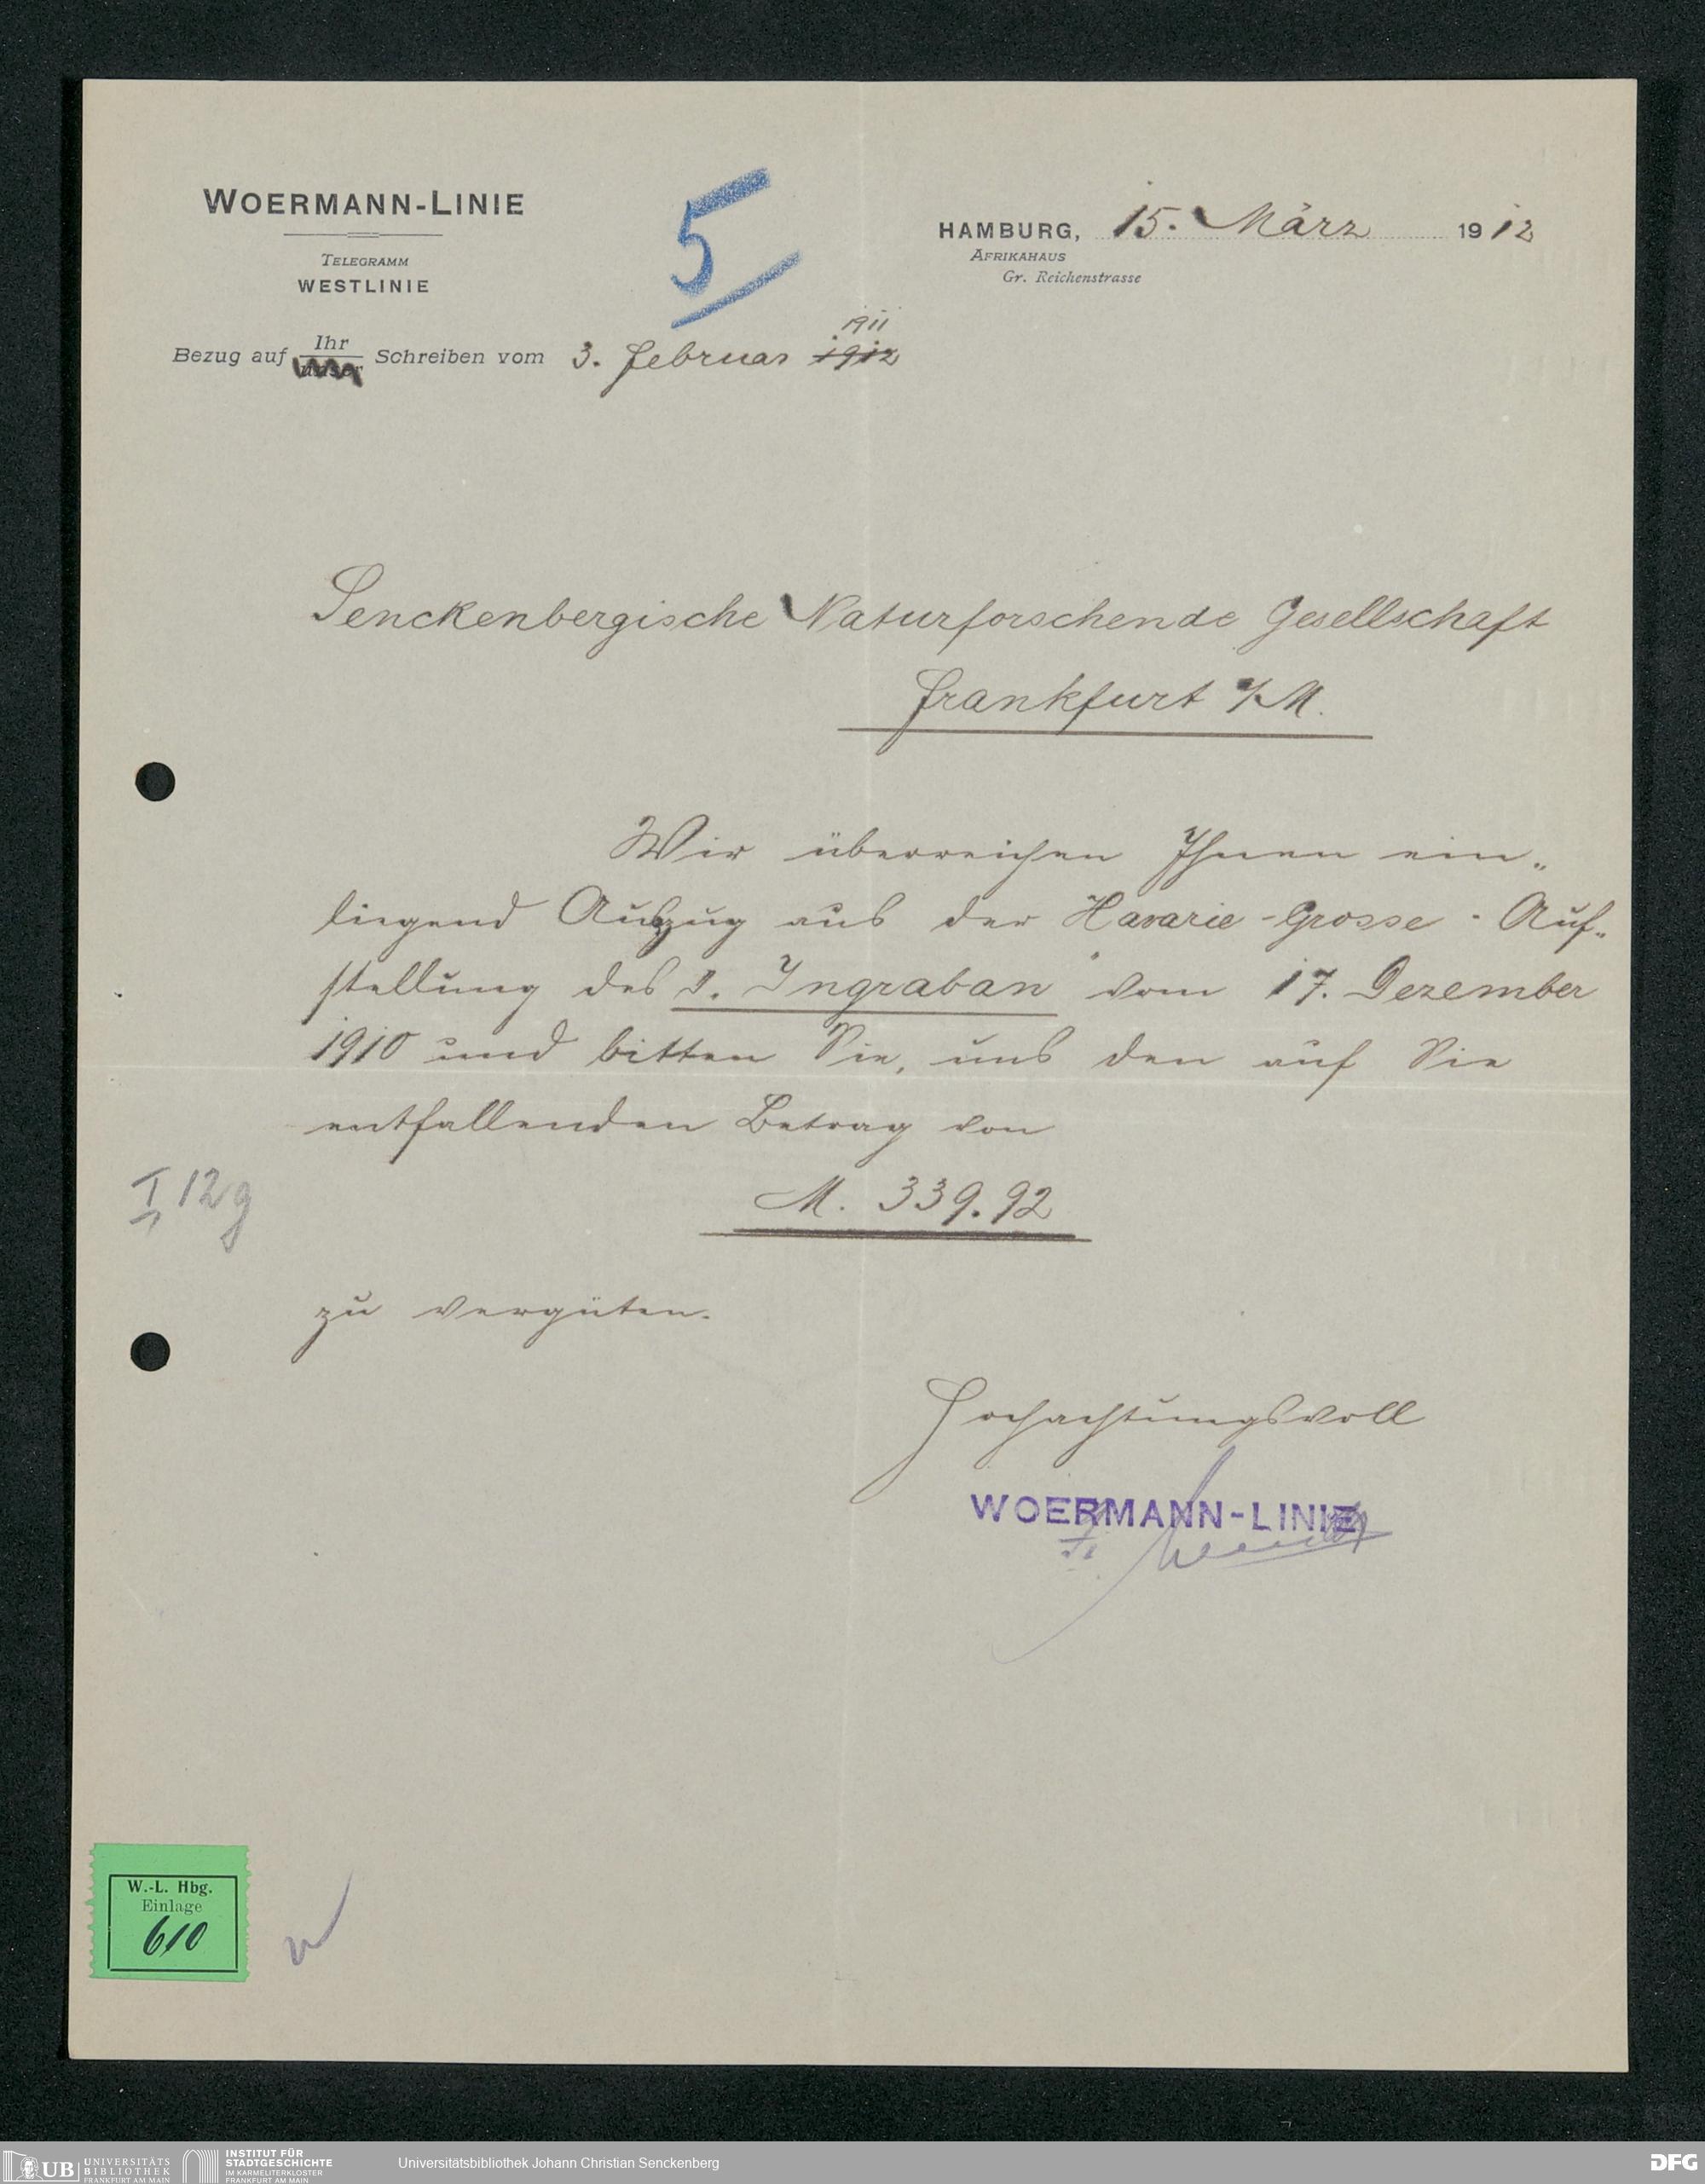 WOERMANN-LINIE
TELEGRAMM
WESTLINIE
5
HAMBURG, 15. März 1912
AFRIKAHAUS
Gr. Reichenstrasse
1911
Bezug auf Ihr Schreiben vom 3. Februar 1912
unser
Senckenbergische Naturforschende Gesellschaft
Frankfurt a/M.
Wir überreichen Ihnen ein„
liegend Auszug aus der Havarie-Grosse-Auf„
stellung des D. Ingraban vom 17. Dezember
1910 und bitten Sie, uns den auf Sie
entfallenden Betrag von
I 12g
M. 339.92
zu vergüten.
Hochachtungsvoll
WOERMANN-LINIE
W.-L. Hbg.
Einlage
610
UB UNIVERSITÄTS
BIBLIOTHEK
FRANKFURT AM MAIN
INSTITUT FÜR
STADTGESCHICHTE
IM KARMELITERKLOSTER
FRANKFURT AM MAIN
Universitätsbibliothek Johann Christian Senckenberg
DFG